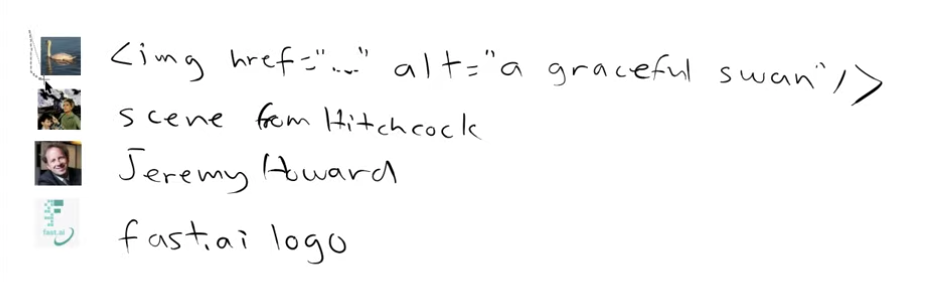 <img href="..." alt="a graceful swan"/>
scene from Hitchcock
Jeremy Howard
fast.ai
fast.ai logo